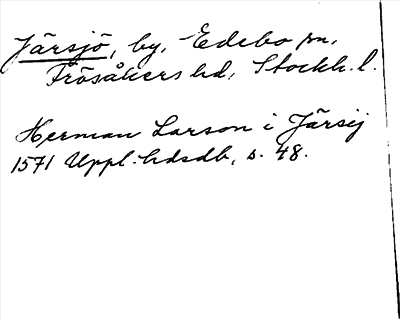 Järsjö, by, Edebo sn,
Frösåkers hd, Stockh. l.
Herman Larson i Järsij
1571 Uppl. hdsdb, s. 48.